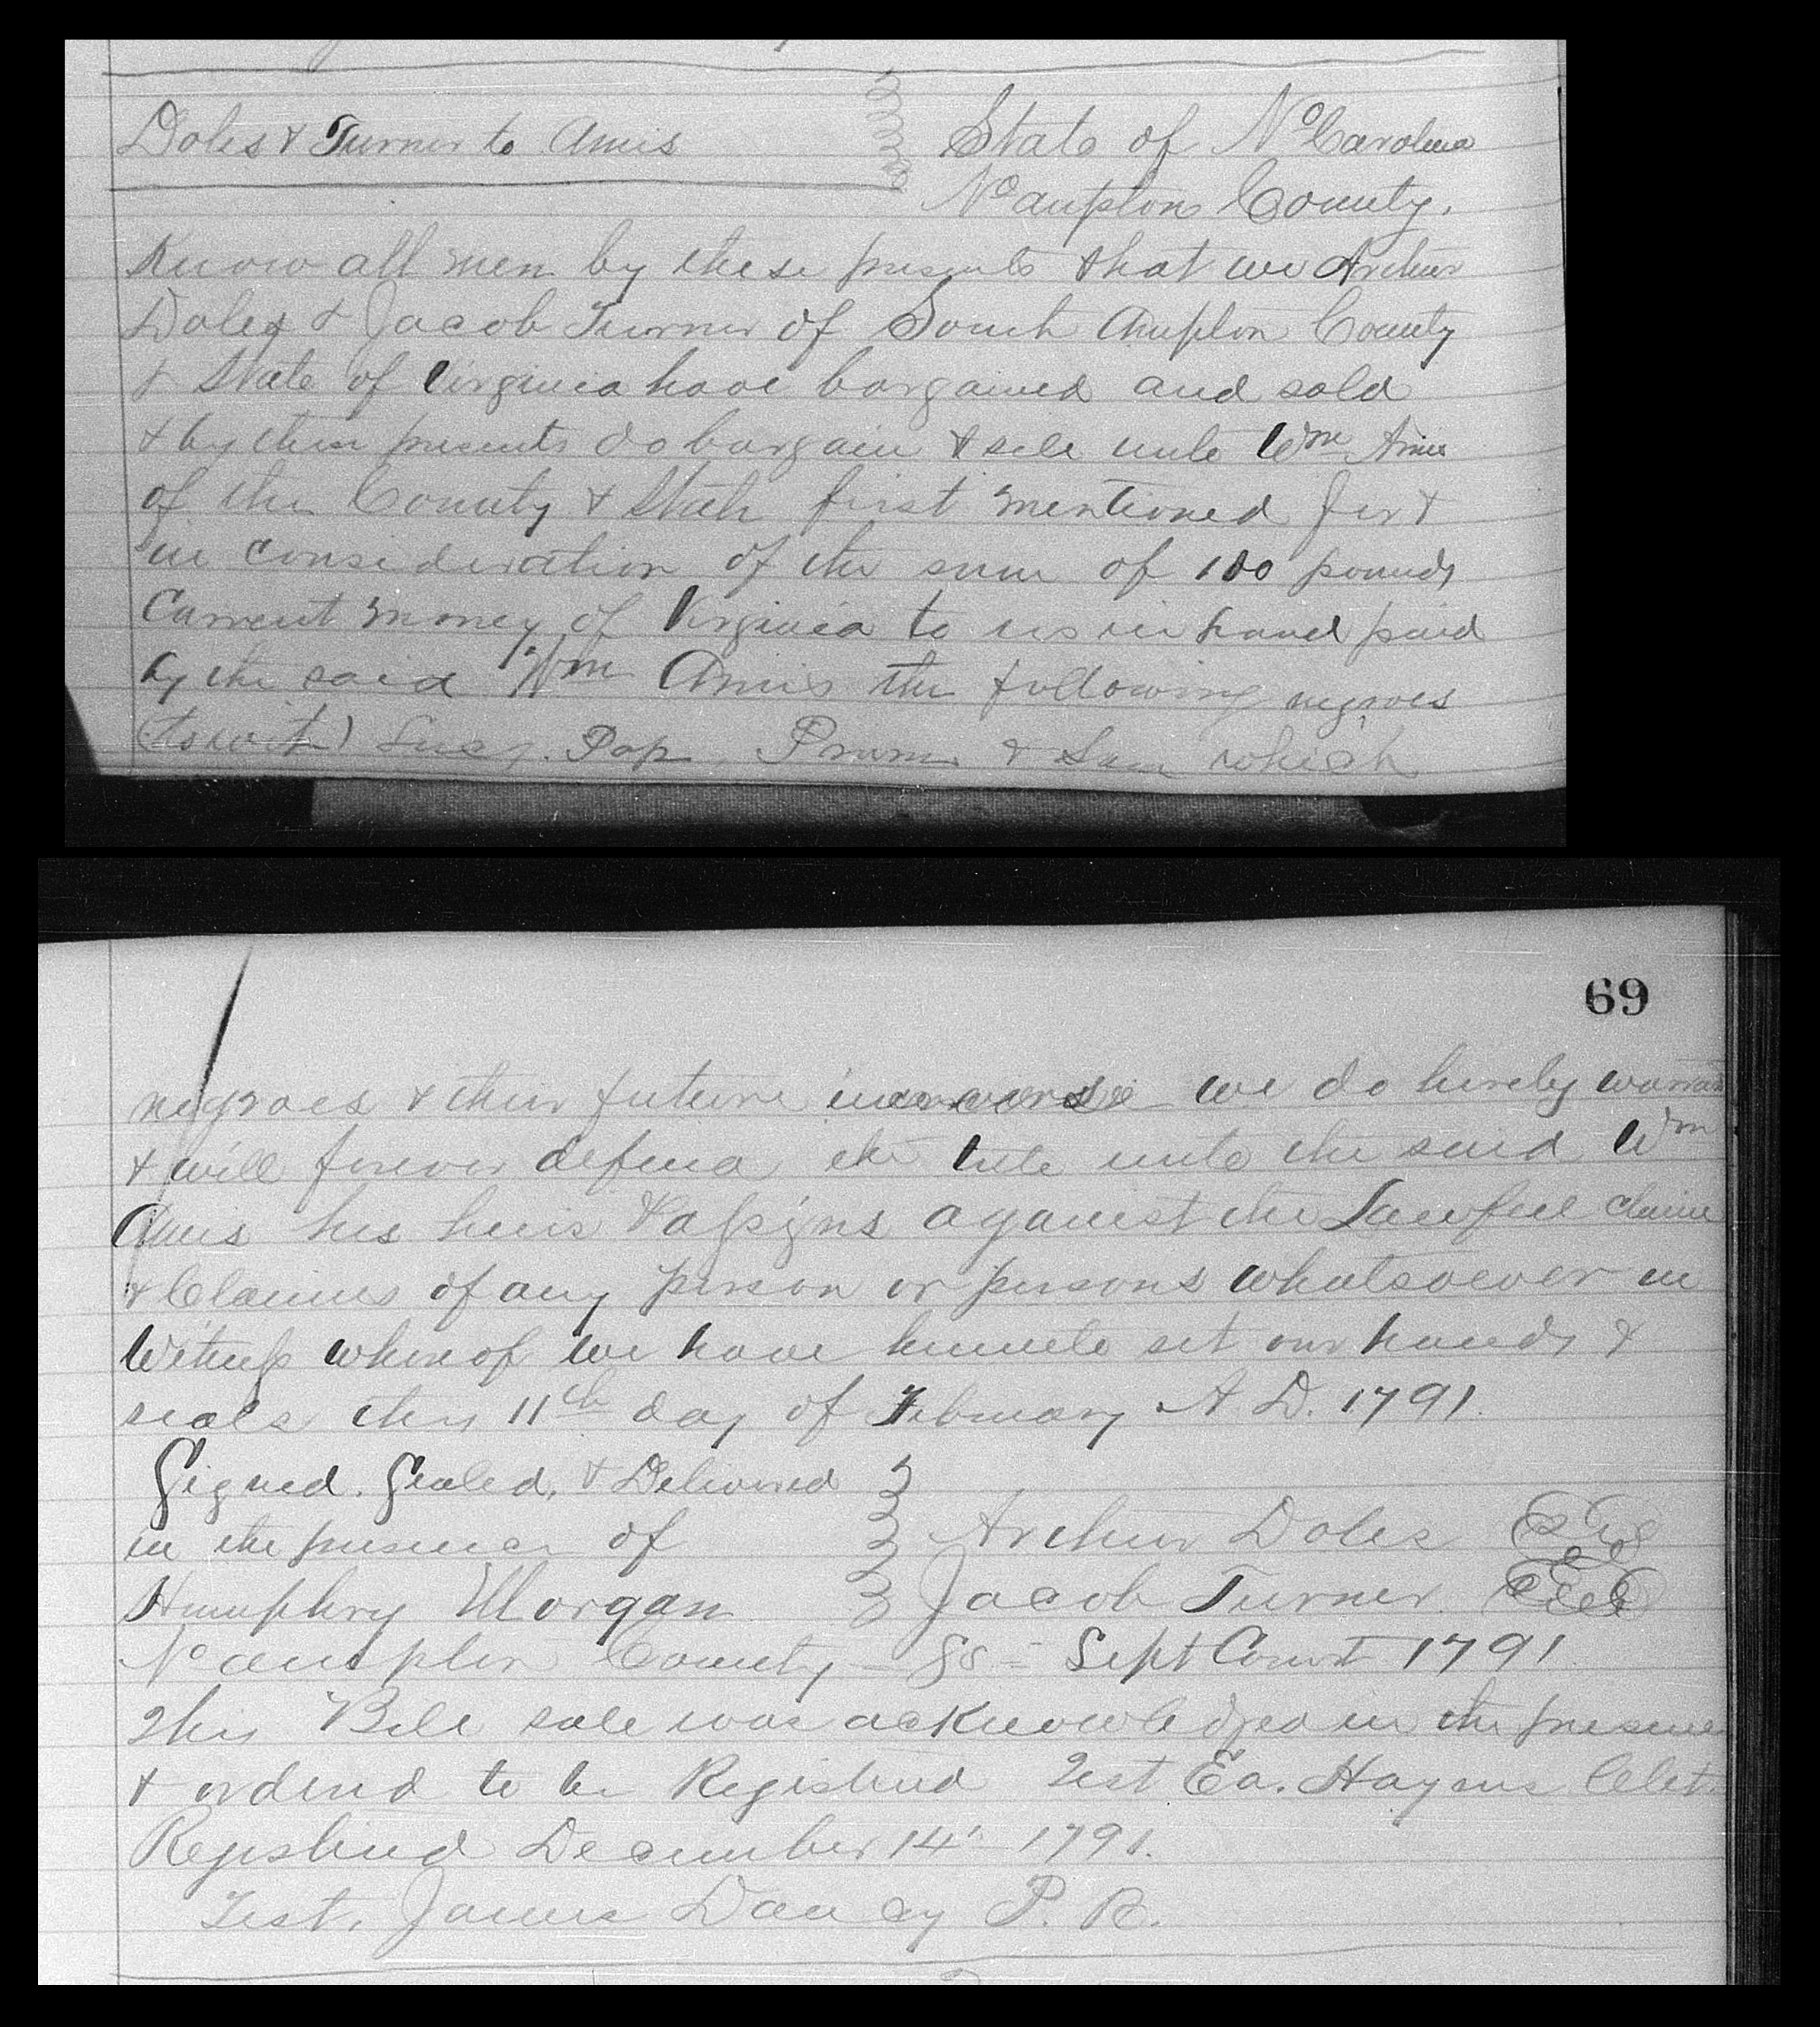 Doles & Turner to Amis
State of No Carolina
No ampton County.
Know all men by these presents that we Archer
Doles & Jacob Turner of South Ampton County
& State of Virginia have bargained and sold
& by these presents do bargain & sele unto Wm Amis
of the County & State first mentioned for &
in consideration of the sum of 100 pounds
Current money of Virginia to us in hand paid
by the said Wm Amis the following negroes
(towit) Lucy. Pop, & Sam which
69
negroes & their future we do hereby warrant
& will forever defend the title unto the said Wm
Amis his heirs & assigns against the Lawful claim
& Claims of any person or persons whatsoever in
Witness whereof we have hereunto set our hands &
seals this 11th day of February A. D. 1791.
Signed. Sealed, & Delivered
in the presence of Archer Doles Seal
Humphry Morgan Jacob Turner. Seal
No ampton County - SS - Sept Court 1791.
This Bill sale was acknowledged in the presence
& ordered to be Registered Test Ea. Haysns
Registered December 14' 1791.
Test. James Dancy P. R.